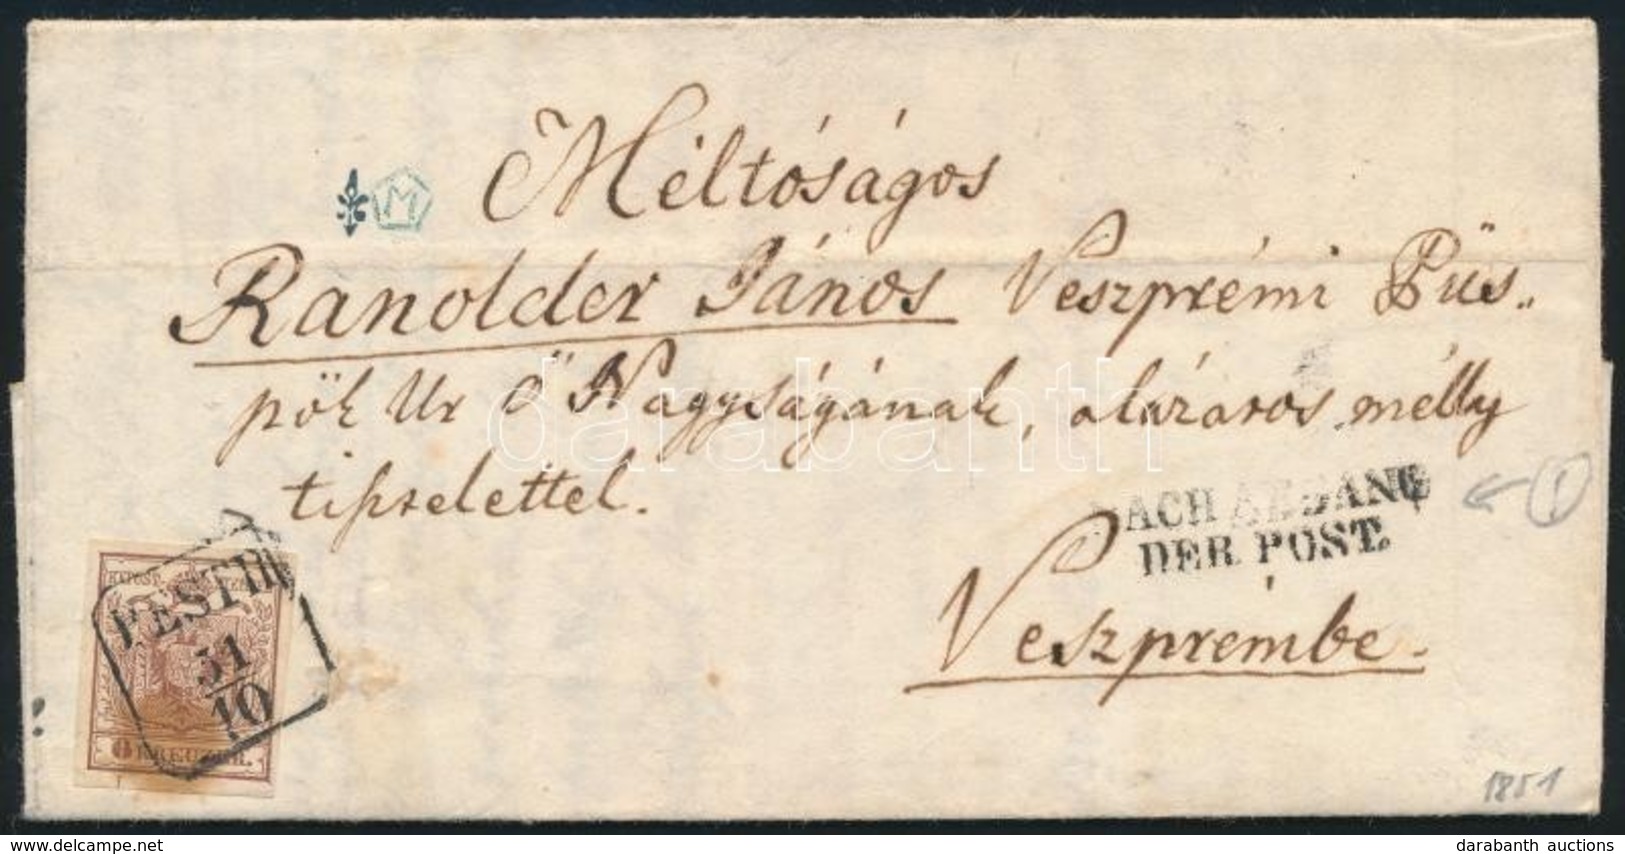 M
Méltóságos
Ranolder János Veszprémi Püs„
pök Ur Ő Nagyságának, alázatos mélly
tisztelettel.
NACH ABGANG
DER POST.
1
Veszprémbe.
PESTH
31
10
6 KREUZER.
1851
darabanth
delcampe.net
darabanth auctions